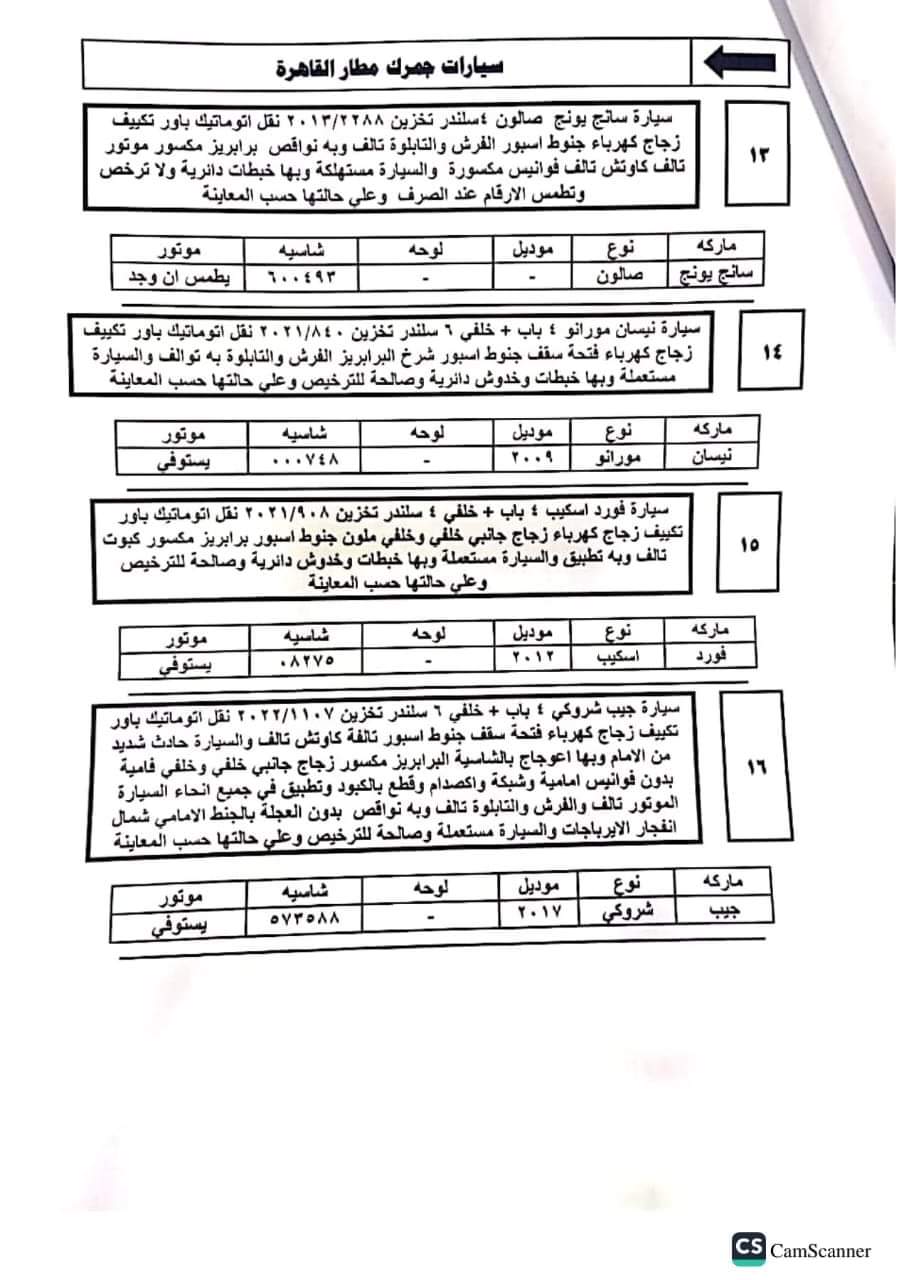 سيارات جمرك مطار القاهرة
١٣
سيارة سانج يونج صالون ٤سلندر تخزين ٢٠١٣/٢٢٨٨ نقل اتوماتيك باور تكييف
زجاج كهرباء جنوط اسبور الفرش والتابلوة تالف وبه نواقص برابريز مكسور موتور
تالف كاوتش تالف فوانيس مكسورة والسيارة مستهلكة وبها خبطات دائرية ولا ترخص
وتطمس الارقام عند الصرف وعلي حالتها حسب المعاينة
ماركه نوع موديل لوحه شاسيه موتور
سانج يونج صالون - - ٦٠٠٤٩٣ يطمس ان وجد
١٤
سيارة نيسان مورانو ٤ باب + خلفي ٦ سلندر تخزين ٢٠٢١/٨٤٠ نقل اتوماتيك باور تكييف
زجاج كهرباء فتحة سقف جنوط اسبور شرخ البرابريز الفرش والتابلوة به توالف والسيارة
مستعملة وبها خبطات وخدوش دائرية وصالحة للترخيص وعلي حالتها حسب المعاينة
ماركه نوع موديل لوحه شاسيه موتور
نيسان مورانو ٢٠٠٩ - ٠٠٠٧٤٨ يستوفي
١٥
سيارة فورد اسكيب ٤ باب + خلفي ٤ سلندر تخزين ٢٠٢١/٩٠٨ نقل اتوماتيك باور
تكييف زجاج كهرباء زجاج جانبي خلفي وخلفي ملون جنوط اسبور برابريز مكسور كبوت
تالف وبه تطبيق والسيارة مستعملة وبها خبطات وخدوش دائرية وصالحة للترخيص
وعلي حالتها حسب المعاينة
ماركه نوع موديل لوحه شاسيه موتور
فورد اسكيب ٢٠١٢ - ٠٨٢٧٥ يستوفي
١٦
سيارة جيب شروكي ٤ باب + خلفي ٦ سلندر تخزين ٢٠٢٢/١١٠٧ نقل اتوماتيك باور
تكييف زجاج كهرباء فتحة سقف جنوط اسبور تالفة كاوتش تالف والسيارة حادث شديد
من الامام وبها اعوجاج بالشاسية البرابريز مكسور زجاج جانبي خلفي وخلفي فامية
بدون فوانيس امامية وشبكة واكصدام وقطع بالكبود وتطبيق في جميع انحاء السيارة
الموتور تالف والفرش والتابلوة تالف وبه نواقص بدون العجلة بالجنط الامامي شمال
انفجار الايرباجات والسيارة مستعملة وصالحة للترخيص وعلي حالتها حسب المعاينة
ماركه نوع موديل لوحه شاسيه موتور
جيب شروكي ٢٠١٧ - ٥٧٣٥٨٨ يستوفي
CS CamScanner